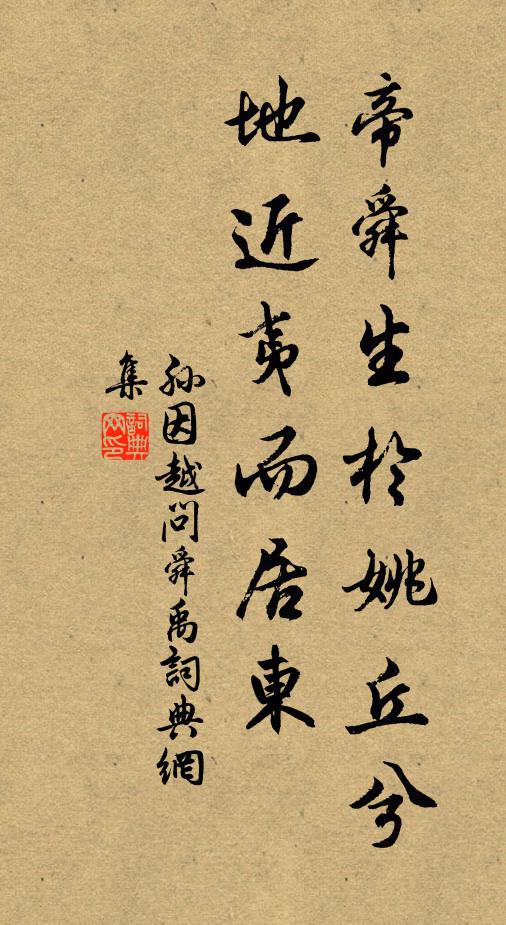 帝舜生於姚丘兮
地近夷而居東
孫因越問舜禹詞典網
集
詞典
网印